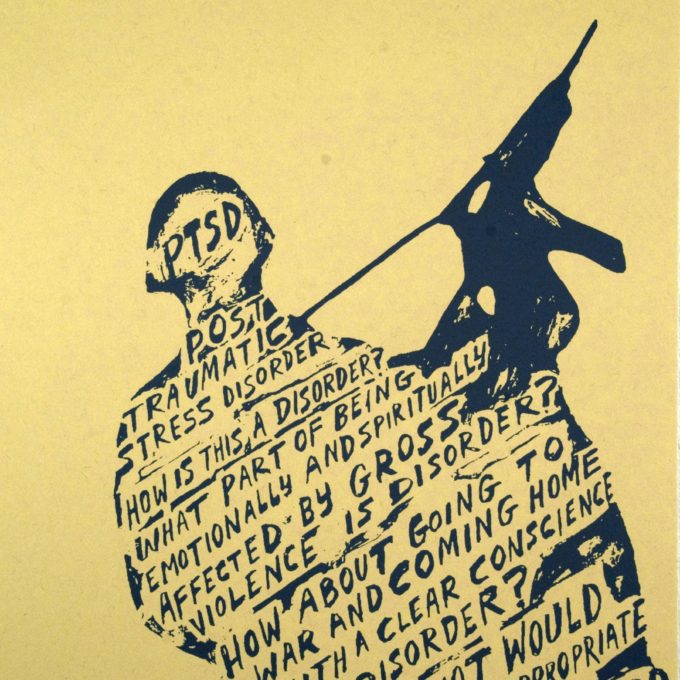 PTSD
POST
TRAUMATIC
STRESS DISORDER
HOW IS THIS A DISORDER?
WHAT PART OF BEING
EMOTIONALLY AND SPIRITUALLY
AFFECTED BY GROSS
VIOLENCE IS DISORDER?
HOW ABOUT GOING TO
WAR AND COMING HOME
WITH A CLEAR CONSCIENCE
DISORDER?
WOULD